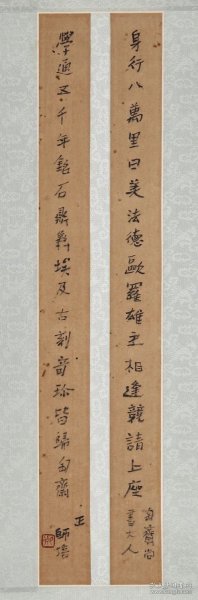 身行八萬里日美法德歐羅雄主相逢競請上座
匋齋尚
書大人
學通五千年銘石鼎彝埃及古刻奇珍皆歸匋齋
正
師培